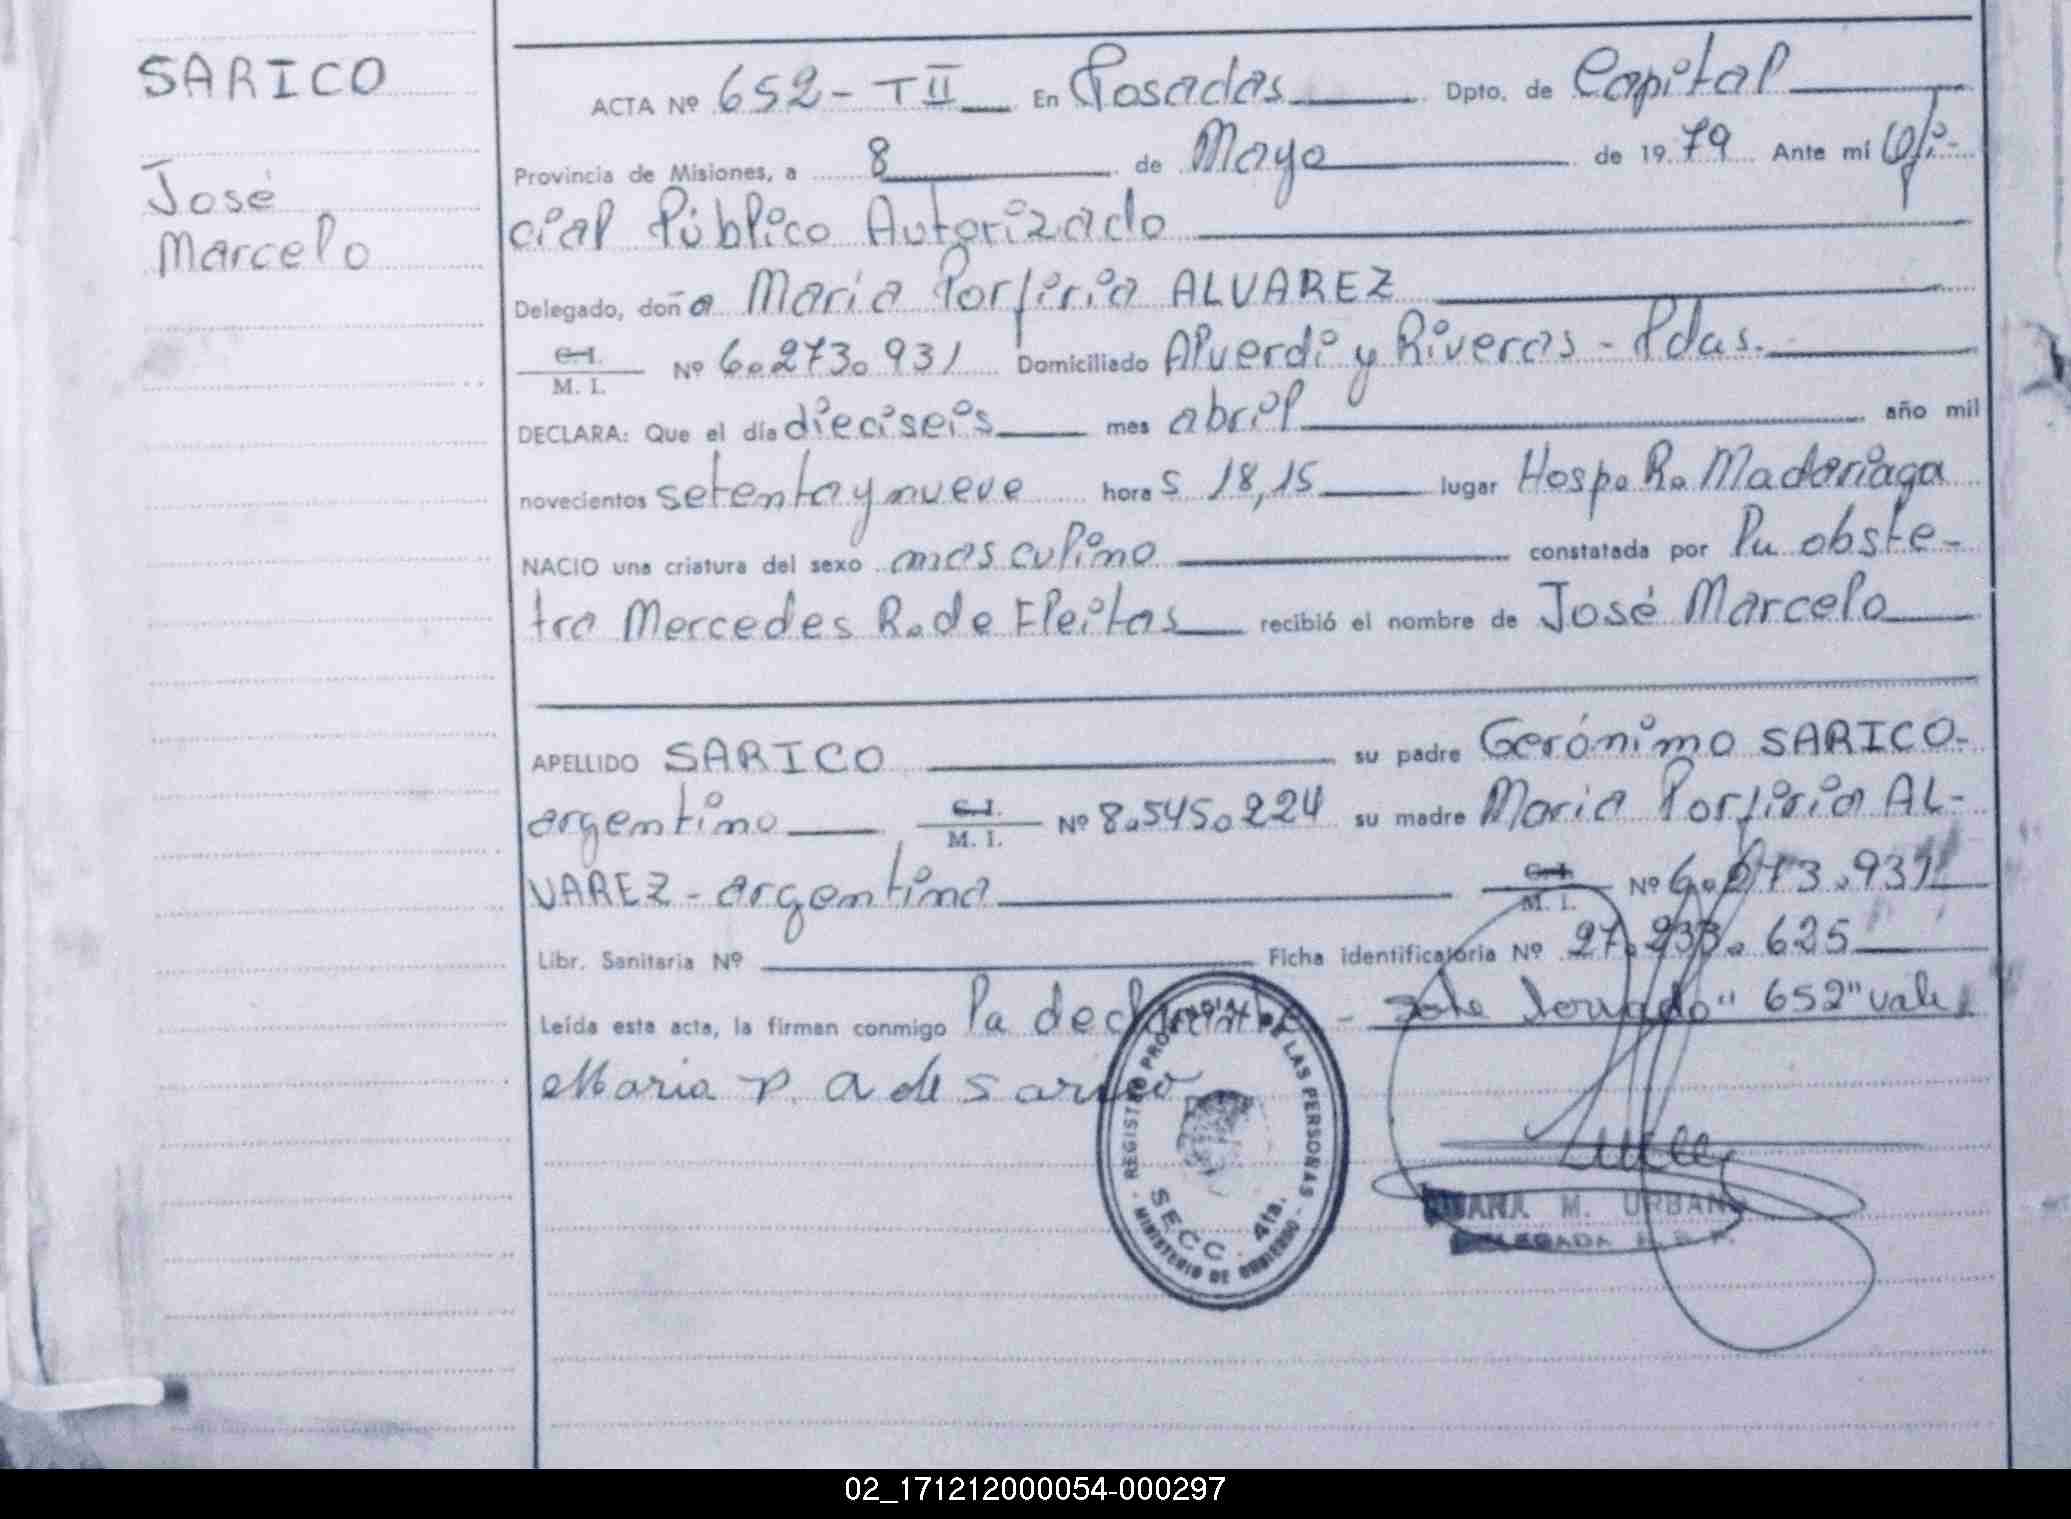 SARICO
José
Marcelo
ACTA Nº 652-TII En Posadas Dpto. de Capital
Provincia de Misiones, a 8 de Mayo de 1979 Ante mí Ofi-
cial Público Autorizado
Delegado, doña María Porfiria ALVAREZ
C.I.
M. I. Nº 6.273.931 Domiciliado Alverdi y Riveros - Pdas.
DECLARA: Que el día dieciseis mes abril año mil
novecientos setenta y nueve horas 18,15 lugar Hosp. R. Madariaga
NACIO una criatura del sexo masculino constatada por la obste-
tra Mercedes R. de Fleitas recibió el nombre de José Marcelo
APELLIDO SARICO su padre Gerónimo SARICO-
argentino C.I.
M. I. Nº 8.545.224 su madre María Porfiria AL-
VAREZ - argentina C.I.
M. I. Nº 6.273.931
Libr. Sanitaria Nº Ficha identificatoria Nº 27.233.625
Leída esta acta, la firman conmigo la declarante - "652" vale
Maria P. A de Sarico
REGISTRO PROVINCIAL DE LAS PERSONAS
- MINISTERIO DE GOBIERNO -
SECC. 4ta.
M. URBAN
DELEGADA
02_171212000054-000297